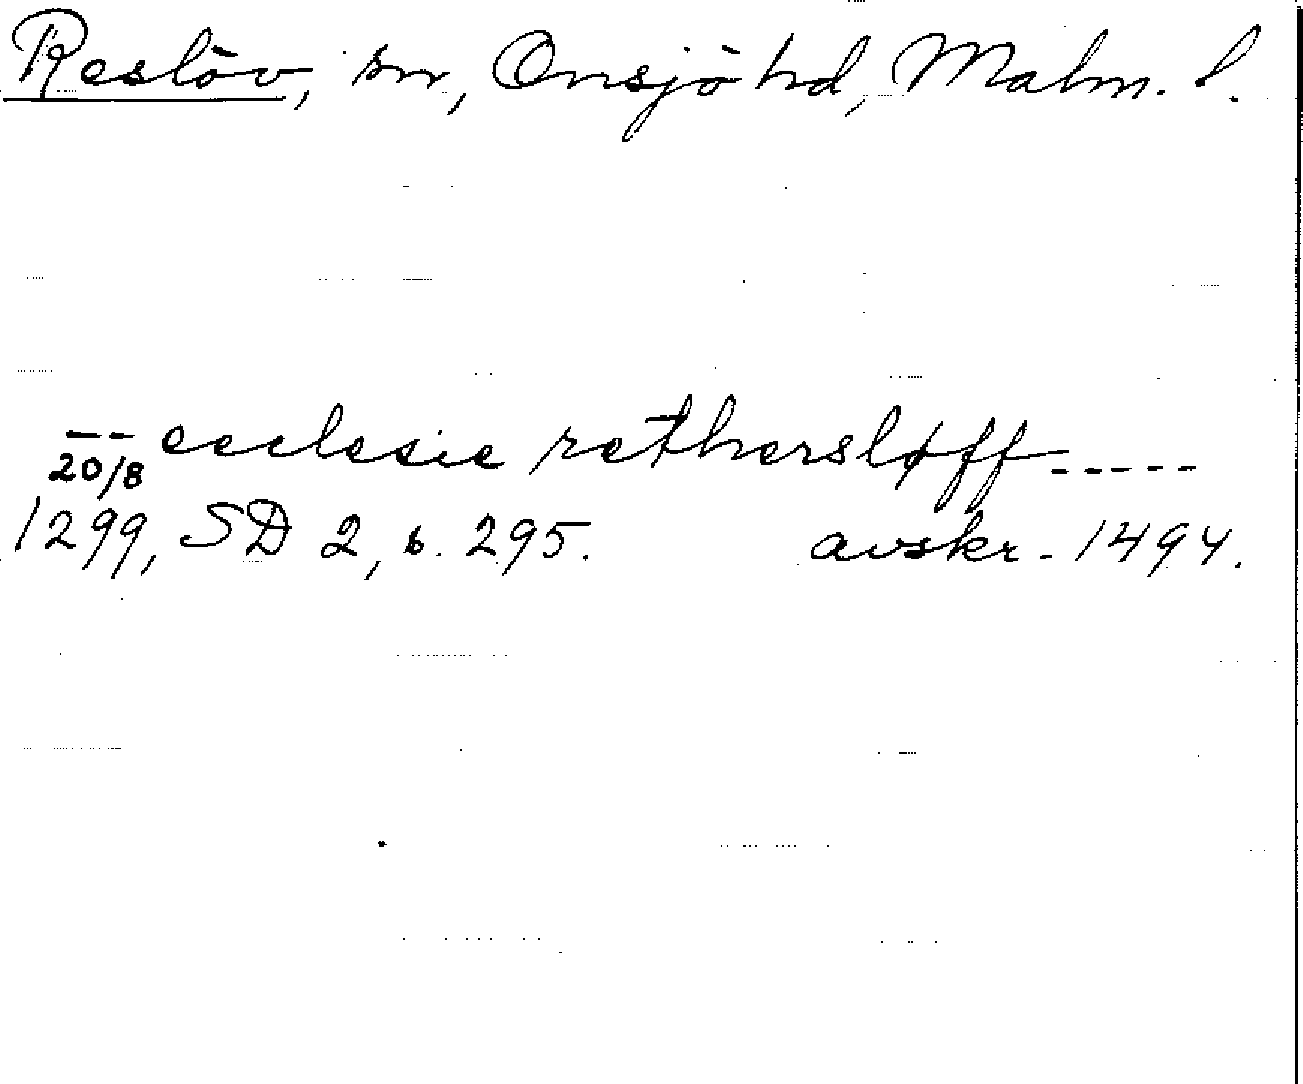 Reslöv, sn, Onsjö hd, Malm. l.
-- ecclesie rethersløff -----
20/8
1299, SD 2, s. 295. avskr. 1494.